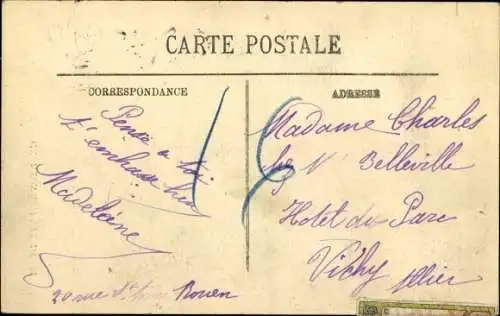 CARTE POSTALE
CORRESPONDANCE
Pense à toi
t'embrasse bien
Madeleine
20 rue Rouen
ADRESSE
Madame Charles
Belleville
Hotel du Parc
Vichy Allier